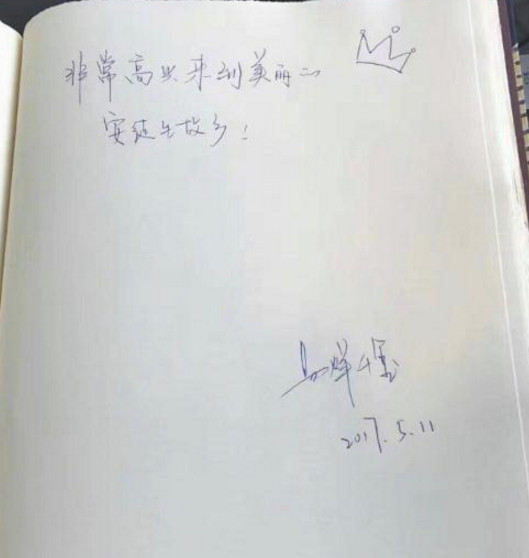 非常高兴来到美丽的
安徒生故乡！
易烊千玺
2017.5.11